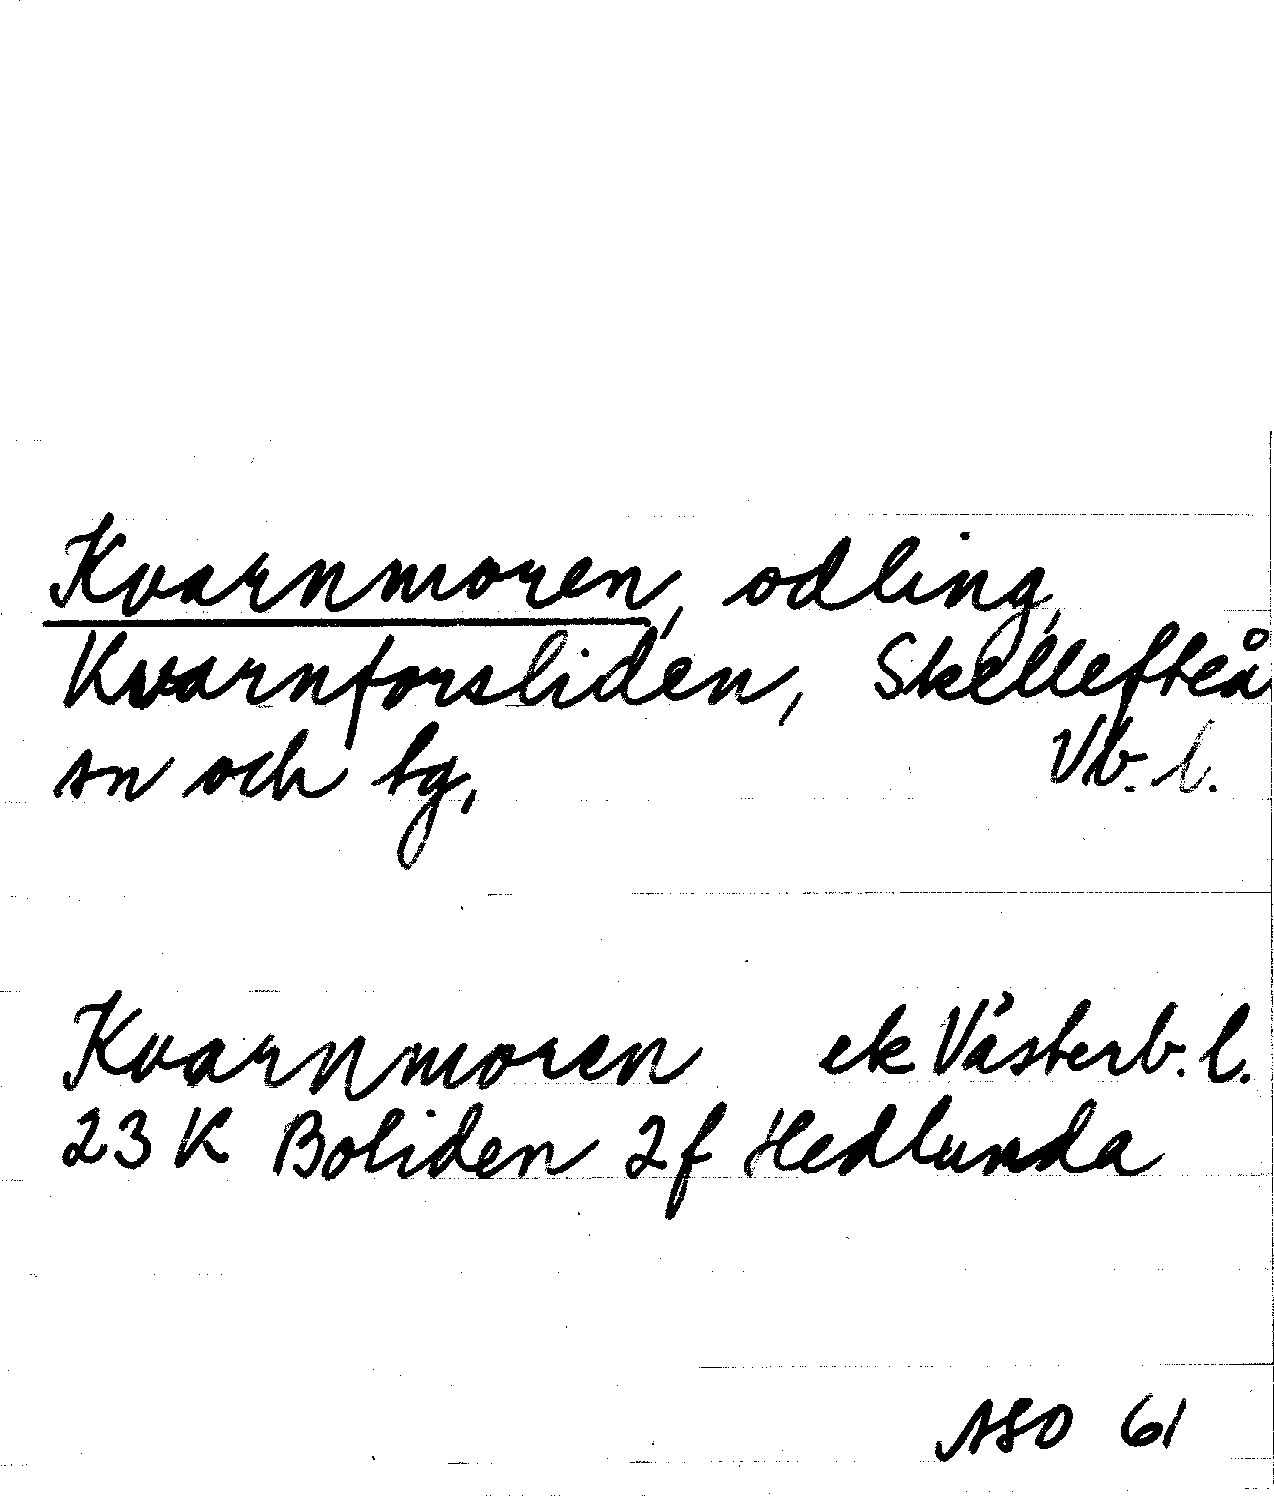 Kvarnmoren, odling,
Kvarnforsliden, Skellefteå
sn och tg, Vb. l.
Kvarnmoren ek Västerb. l.
23 K Boliden 2f Hedlunda
ASO 61